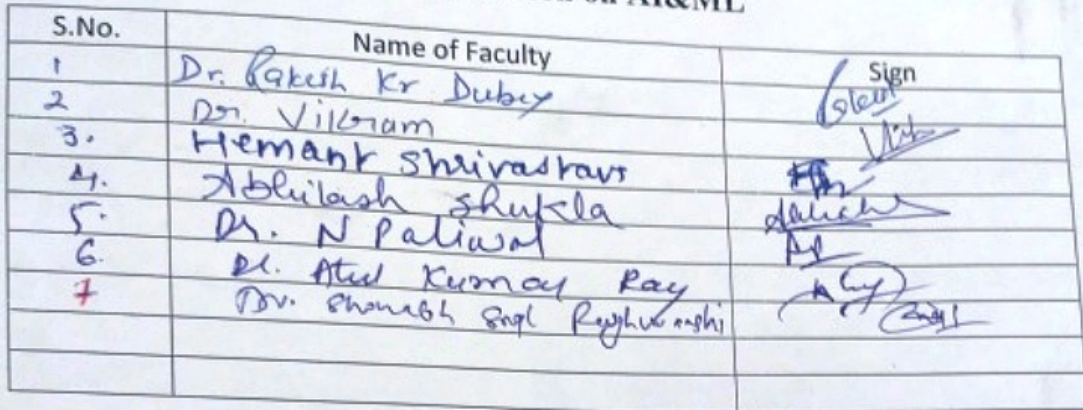 on AI&ML
S.No. Name of Faculty Sign
1 Dr. Rakesh Kr Dubey
2 Dr. Vikram
3. Hemant Shrivastava
4. Abhilash Shukla
5. Dr. N Paliwal
6. Dr. Atul Kumar Ray
7 Dr. Raghuvanshi